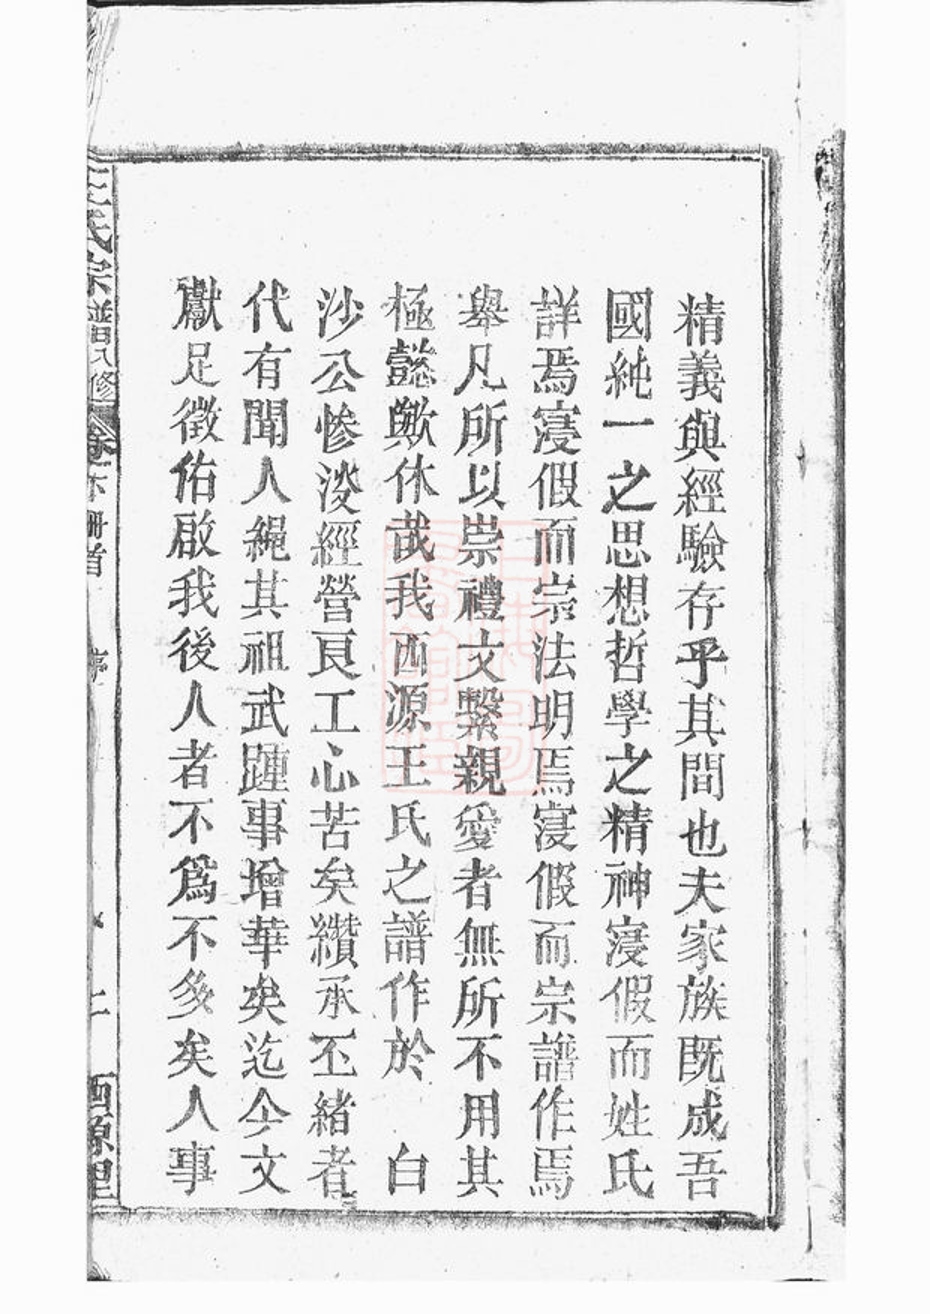 精義與經驗存乎其間也夫家族既成吾
國純一之思想哲學之精神寖假而姓氏
詳焉寖假而宗法明焉寖假而宗譜作焉
舉凡所以崇禮文繫親愛者無所不用其
極懿歟休哉我西源王氏之譜作於　白
沙公慘淡經營良工心苦矣纘承丕緒者
代有聞人繩其祖武踵事增華矣迄今文
獻足徵佑啟我後人者不爲不多矣人事
王氏宗譜八修 卷下冊首 序 西源里